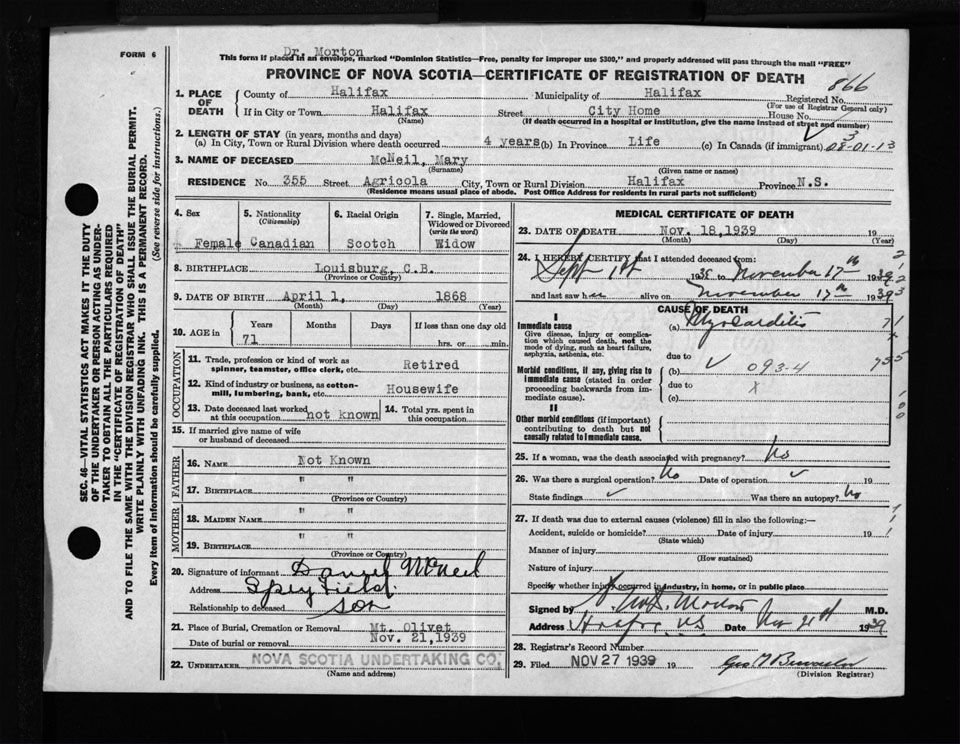 FORM 6
Dr. Morton
This form if placed in an envelope, marked "Dominion Statistics—Free, penalty for improper use $300," and properly addressed will pass through the mail "FREE"
PROVINCE OF NOVA SCOTIA—CERTIFICATE OF REGISTRATION OF DEATH
866
1. PLACE OF DEATH
County of Halifax Municipality of Halifax Registered No.
(For use of Registrar General only)
If in City or Town Halifax Street City Home House No.
(Name) (If death occurred in a hospital or institution, give the name instead of street and number)
2. LENGTH OF STAY (in years, months and days)
(a) In City, Town or Rural Division where death occurred 4 years (b) In Province Life (c) In Canada (if immigrant)
3. NAME OF DECEASED McNeil, Mary
(Surname) (Given name or names)
RESIDENCE No. 355 Street Agricola City, Town or Rural Division Halifax Province N.S.
(Residence means usual place of abode. Post Office Address for residents in rural parts not sufficient)
4. Sex Female
5. Nationality (Citizenship) Canadian
6. Racial Origin Scotch
7. Single, Married, Widowed or Divorced (write the word) Widow
8. BIRTHPLACE Louisburg, C.B.
(Province or Country)
9. DATE OF BIRTH April 1, 1868
(Month) (Day) (Year)
10. AGE in Years Months Days If less than one day old
71 hrs. or min.
OCCUPATION
11. Trade, profession or kind of work as spinner, teamster, office clerk, etc. Retired
12. Kind of industry or business, as cotton-mill, lumbering, bank, etc. Housewife
13. Date deceased last worked at this occupation not known
14. Total yrs. spent in this occupation
15. If married give name of wife or husband of deceased
FATHER
16. NAME Not Known
17. BIRTHPLACE " "
(Province or Country)
MOTHER
18. MAIDEN NAME " "
19. BIRTHPLACE " "
(Province or Country)
20. Signature of informant Daniel McNeil
Address Spryfield
Relationship to deceased son
21. Place of Burial, Cremation or Removal Mt. Olivet
Date of burial or removal Nov. 21,1939
22. UNDERTAKER NOVA SCOTIA UNDERTAKING CO.
(Name and address)
MEDICAL CERTIFICATE OF DEATH
23. DATE OF DEATH Nov. 18,1939 19
(Month) (Day) (Year)
24. I HEREBY CERTIFY that I attended deceased from:
Sept 1st to November 17th 1939
and last saw her alive on November 17th 1939
CAUSE OF DEATH
I
Immediate cause
Give disease, injury or complication which caused death, not the mode of dying, such as heart failure, asphyxia, asthenia, etc.
(a) Myocarditis
due to
(b) 093-4
due to
(c)
Morbid conditions, if any, giving rise to immediate cause (stated in order proceeding backwards from immediate cause).
II
Other morbid conditions (if important) contributing to death but not causally related to immediate cause.
25. If a woman, was the death associated with pregnancy? No
26. Was there a surgical operation? No Date of operation 19
State findings Was there an autopsy? No
27. If death was due to external causes (violence) fill in also the following:—
Accident, suicide or homicide? Date of injury 19
(State which)
Manner of injury
(How sustained)
Nature of injury
Specify whether injury occurred in industry, in home, or in public place
Signed by Morton M.D.
Address Halifax, N.S. Date Nov 21st 1939
28. Registrar's Record Number
29. Filed NOV 27 1939 19
(Division Registrar)
SEC. 46—VITAL STATISTICS ACT MAKES IT THE DUTY
OF THE UNDERTAKER OR PERSON ACTING AS UNDER-
TAKER TO OBTAIN ALL THE PARTICULARS REQUIRED
IN THE "CERTIFICATE OF REGISTRATION OF DEATH"
AND TO FILE THE SAME WITH THE DIVISION REGISTRAR WHO SHALL ISSUE THE BURIAL PERMIT.
WRITE PLAINLY WITH UNFADING INK. THIS IS A PERMANENT RECORD.
Every item of information should be carefully supplied. (See reverse side for instructions.)